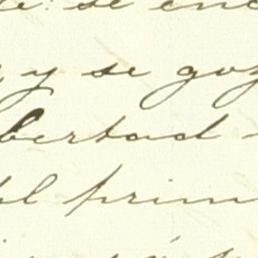 se enc
y se goz
bertad
el prim